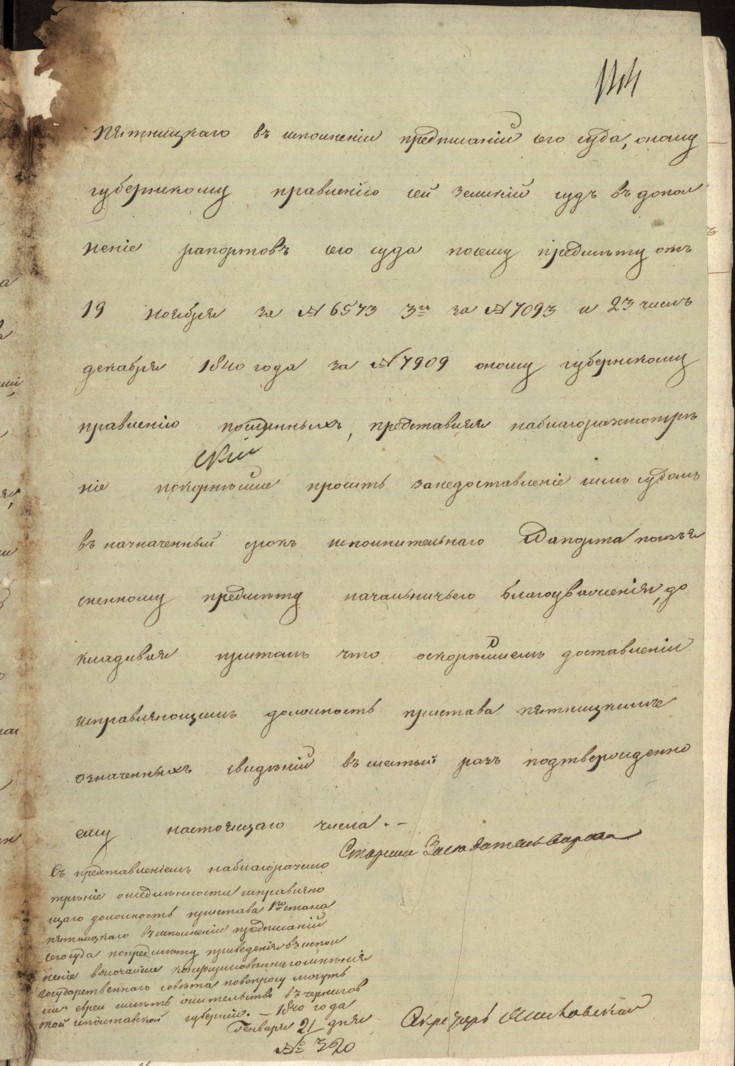 144
Пятницкаго въ исполненіи предписаній сего суда, оному
губернскому правленію сей земскій судъ въ допол
неніе рапортовъ сего суда посему предмѣту отъ
19 ноября за № 6573 3го за № 7093 и 23 числъ
декабря 1840 года за № 7909 оному губернскому
правленію посланныхъ, представляя наблагоразсмотрѣ
ніе покорнѣйше проситъ занедоставленіе симъ судомъ
въ назначенный срокъ исполнительнаго рапорта поизъя
сненному предмѣту начальничьего благоуваженія, до
кладывая притомъ что оскорѣйшемъ доставленіи
исправляющимъ должность пристава Пятницкимъ
означенныхъ свидѣній въ шестый разъ подтверждено
ему настоящаго числа. –
Старшій Засѣдатель
съ представленіемъ наблагоразсмо
трѣніе омедлѣнности исправляю
щаго должность пристава 1го стана
Пятницкаго въ исполненіи предписаній
сего суда попредмѣту приведенія въ испол
неніе высочайше конфирмованнаго мнѣнія
государственнаго совѣта повопросу могутъ
ли евреи имѣть жительство въ чернигов
ской и полтавской губерніи. – 1840 года
Генваря 21 дня
№ 320
Секретарь